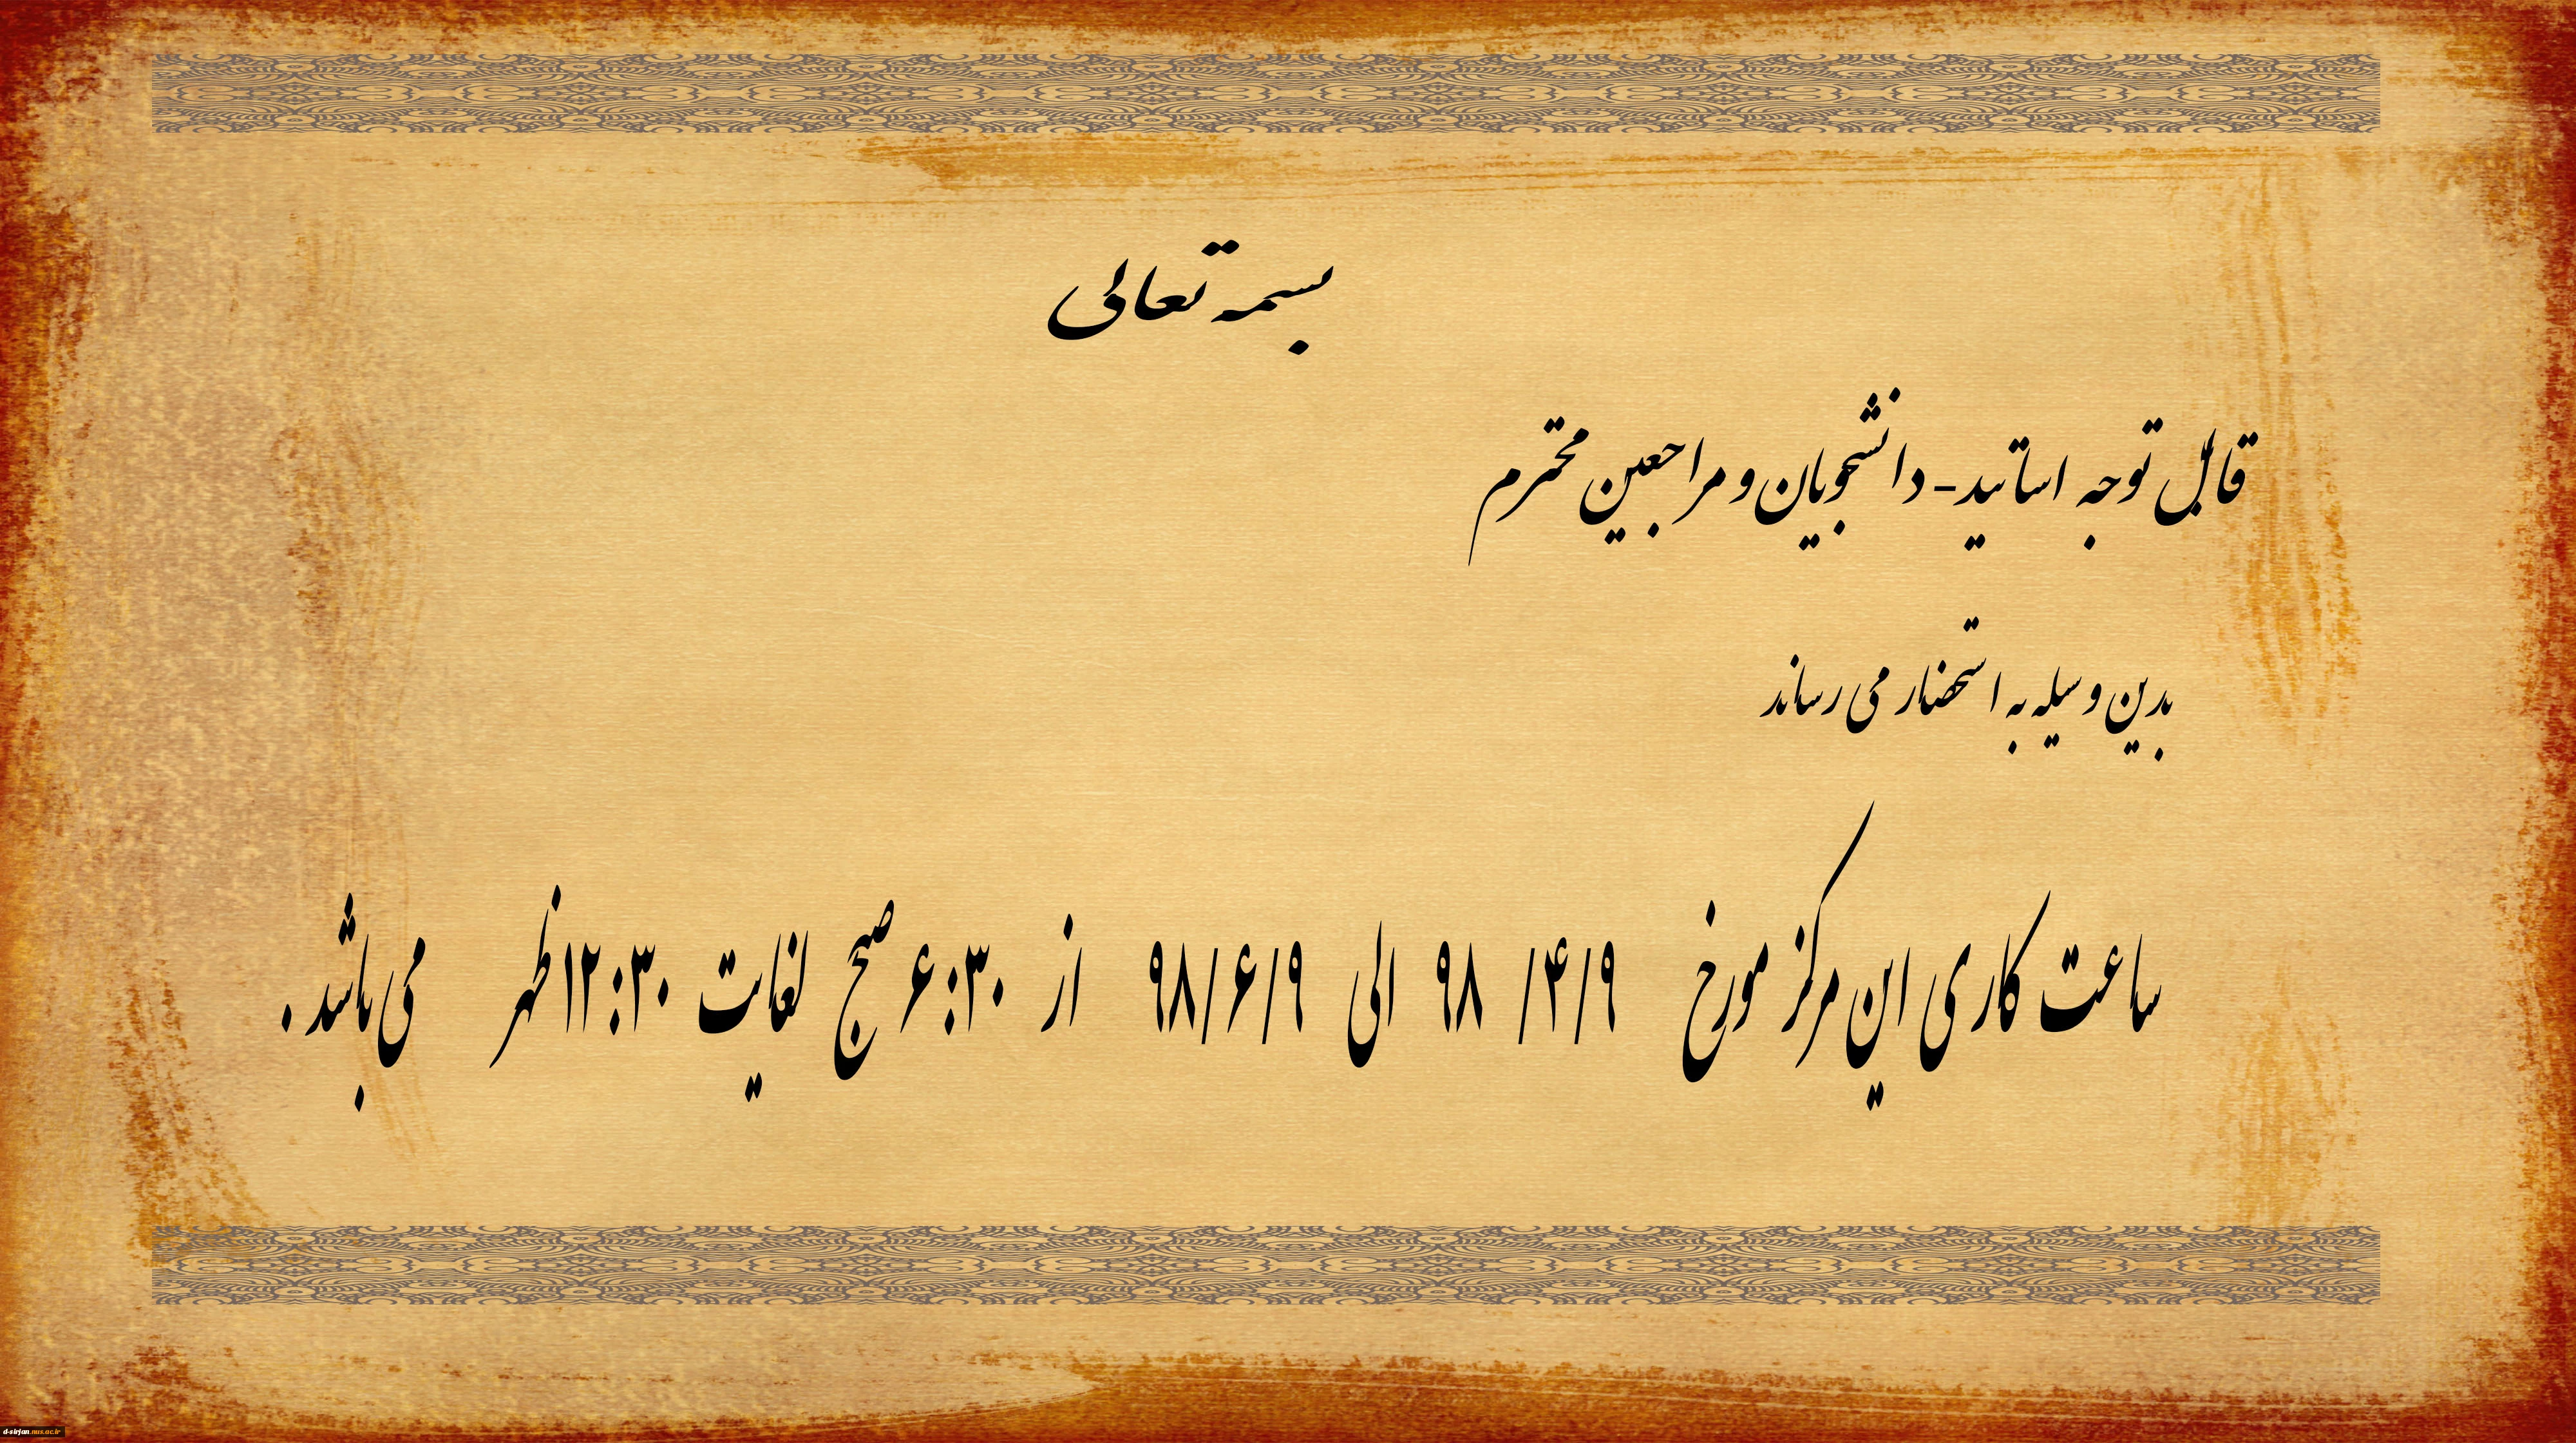 بسمه تعالی
قابل توجه اساتید - دانشجویان و مراجعین محترم
بدین وسیله به استحضار می رساند
ساعت کاری این مرکز مورخ ۹/۴/ ۹۸ الی ۹/۶/۹۸ از ۶:۳۰ صبح لغایت ۱۲:۳۰ ظهر می باشد .
d-sirjan.nus.ac.ir